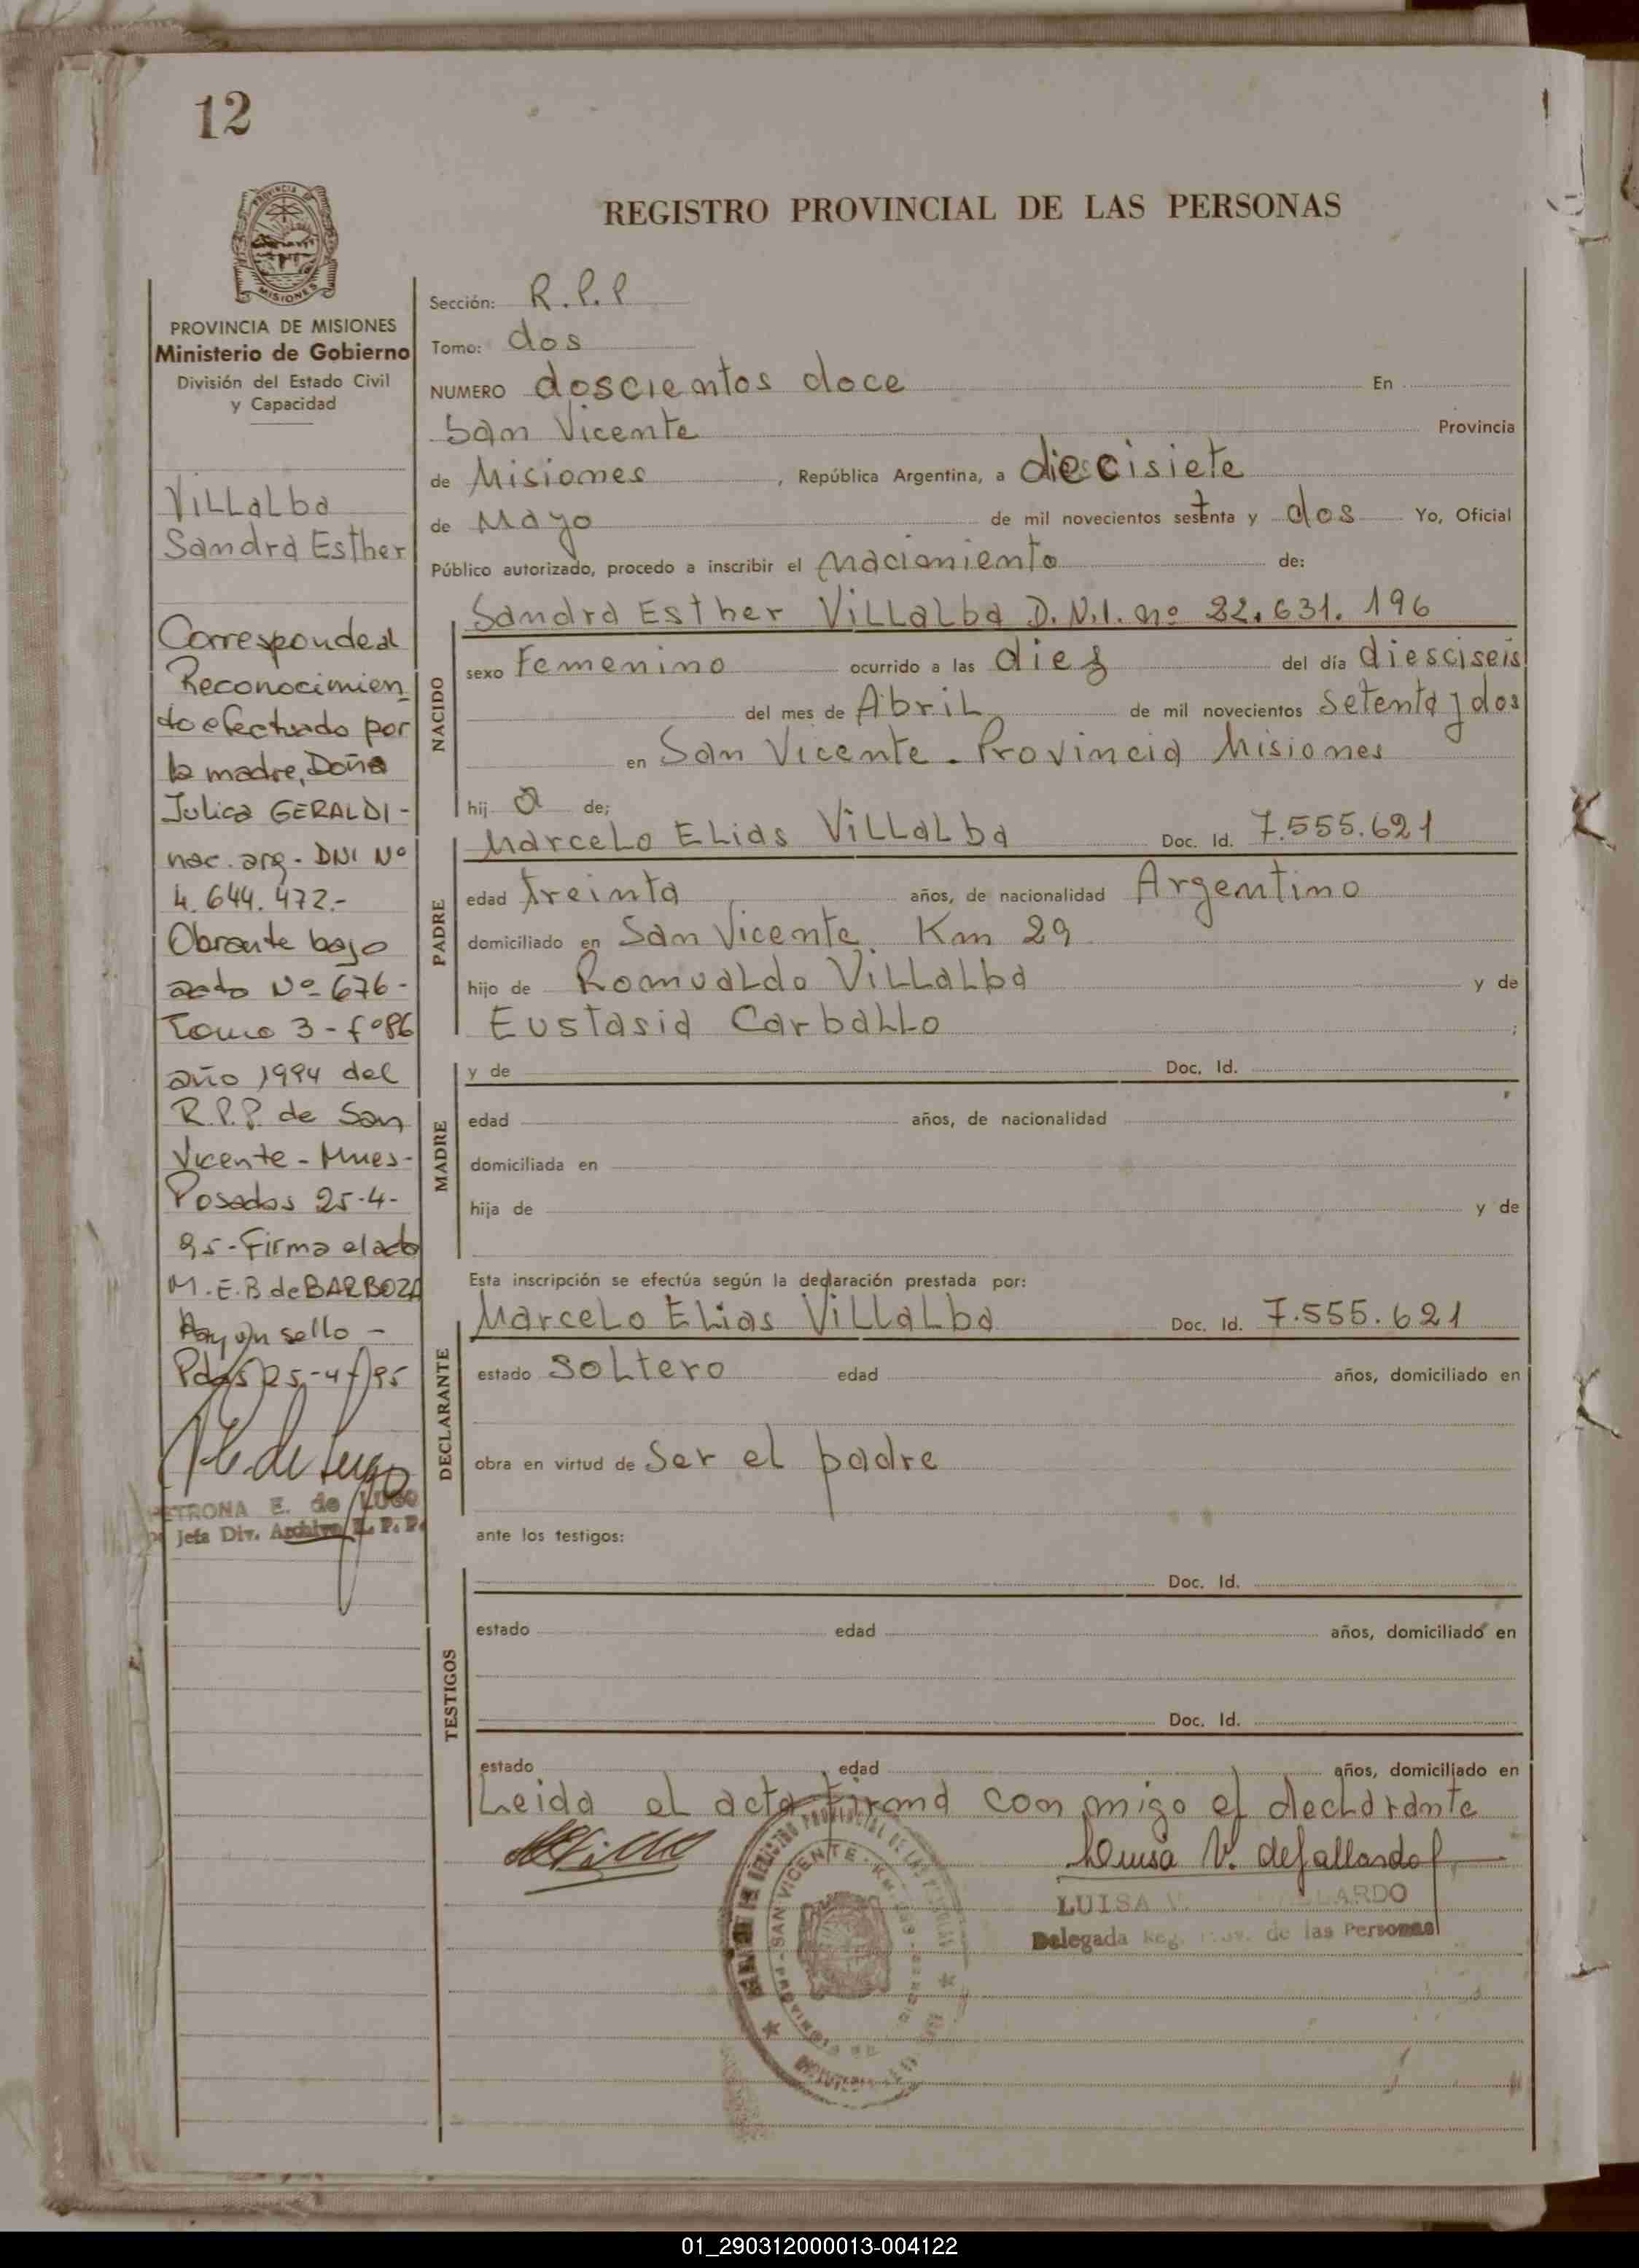 12
REGISTRO PROVINCIAL DE LAS PERSONAS
PROVINCIA DE
MISIONES
PROVINCIA DE MISIONES
Ministerio de Gobierno
División del Estado Civil
y Capacidad
Villalba
Sandra Esther
Corresponde al
Reconocimien
to efectuado por
la madre, Doña
Julica GERALDI -
nac. arg - DNI Nº
4.644.472.-
Obrante bajo
acta Nº 676 -
Tomo 3 - fº 86
año 1994 del
R.P.P. de San
Vicente - Mnes -
Posadas 25-4-
95 - Firma el acta
M.E.B de BARBOZA
Hay un sello -
Pdas 25-4-95
PETRONA E. de LUGO
Jefa Div. Archivo R.P.P.
Sección: R.P.P
Tomo: dos
NUMERO doscientos doce En
San Vicente Provincia
de Misiones , República Argentina, a diecisiete
de Mayo de mil novecientos setenta y dos Yo, Oficial
Público autorizado, procedo a inscribir el nacimiento de:
NACIDO
Sandra Esther Villalba D.N.I. nº 22.631.196
sexo Femenino ocurrido a las diez del día diesciseis
del mes de Abril de mil novecientos setenta y dos
en San Vicente - Provincia Misiones
hij a de;
PADRE
Marcelo Elias Villalba Doc. Id. 7.555.621
edad treinta años, de nacionalidad Argentino
domiciliado en San Vicente Km 29
hijo de Romualdo Villalba y de
Eustasia Carballo ;
MADRE
y de Doc. Id.
edad años, de nacionalidad
domiciliada en
hija de y de
Esta inscripción se efectúa según la declaración prestada por:
DECLARANTE
Marcelo Elias Villalba Doc. Id. 7.555.621
estado soltero edad años, domiciliado en
obra en virtud de ser el padre
ante los testigos:
TESTIGOS
Doc. Id.
estado edad años, domiciliado en
Doc. Id.
estado edad años, domiciliado en
Leida el acta firma con migo el declarante
Luisa V. de Gallardo
LUISA V. LARDO
Delegada Reg. Prov. de las Personas
SAN VICENTE - Km.
01_290312000013-004122